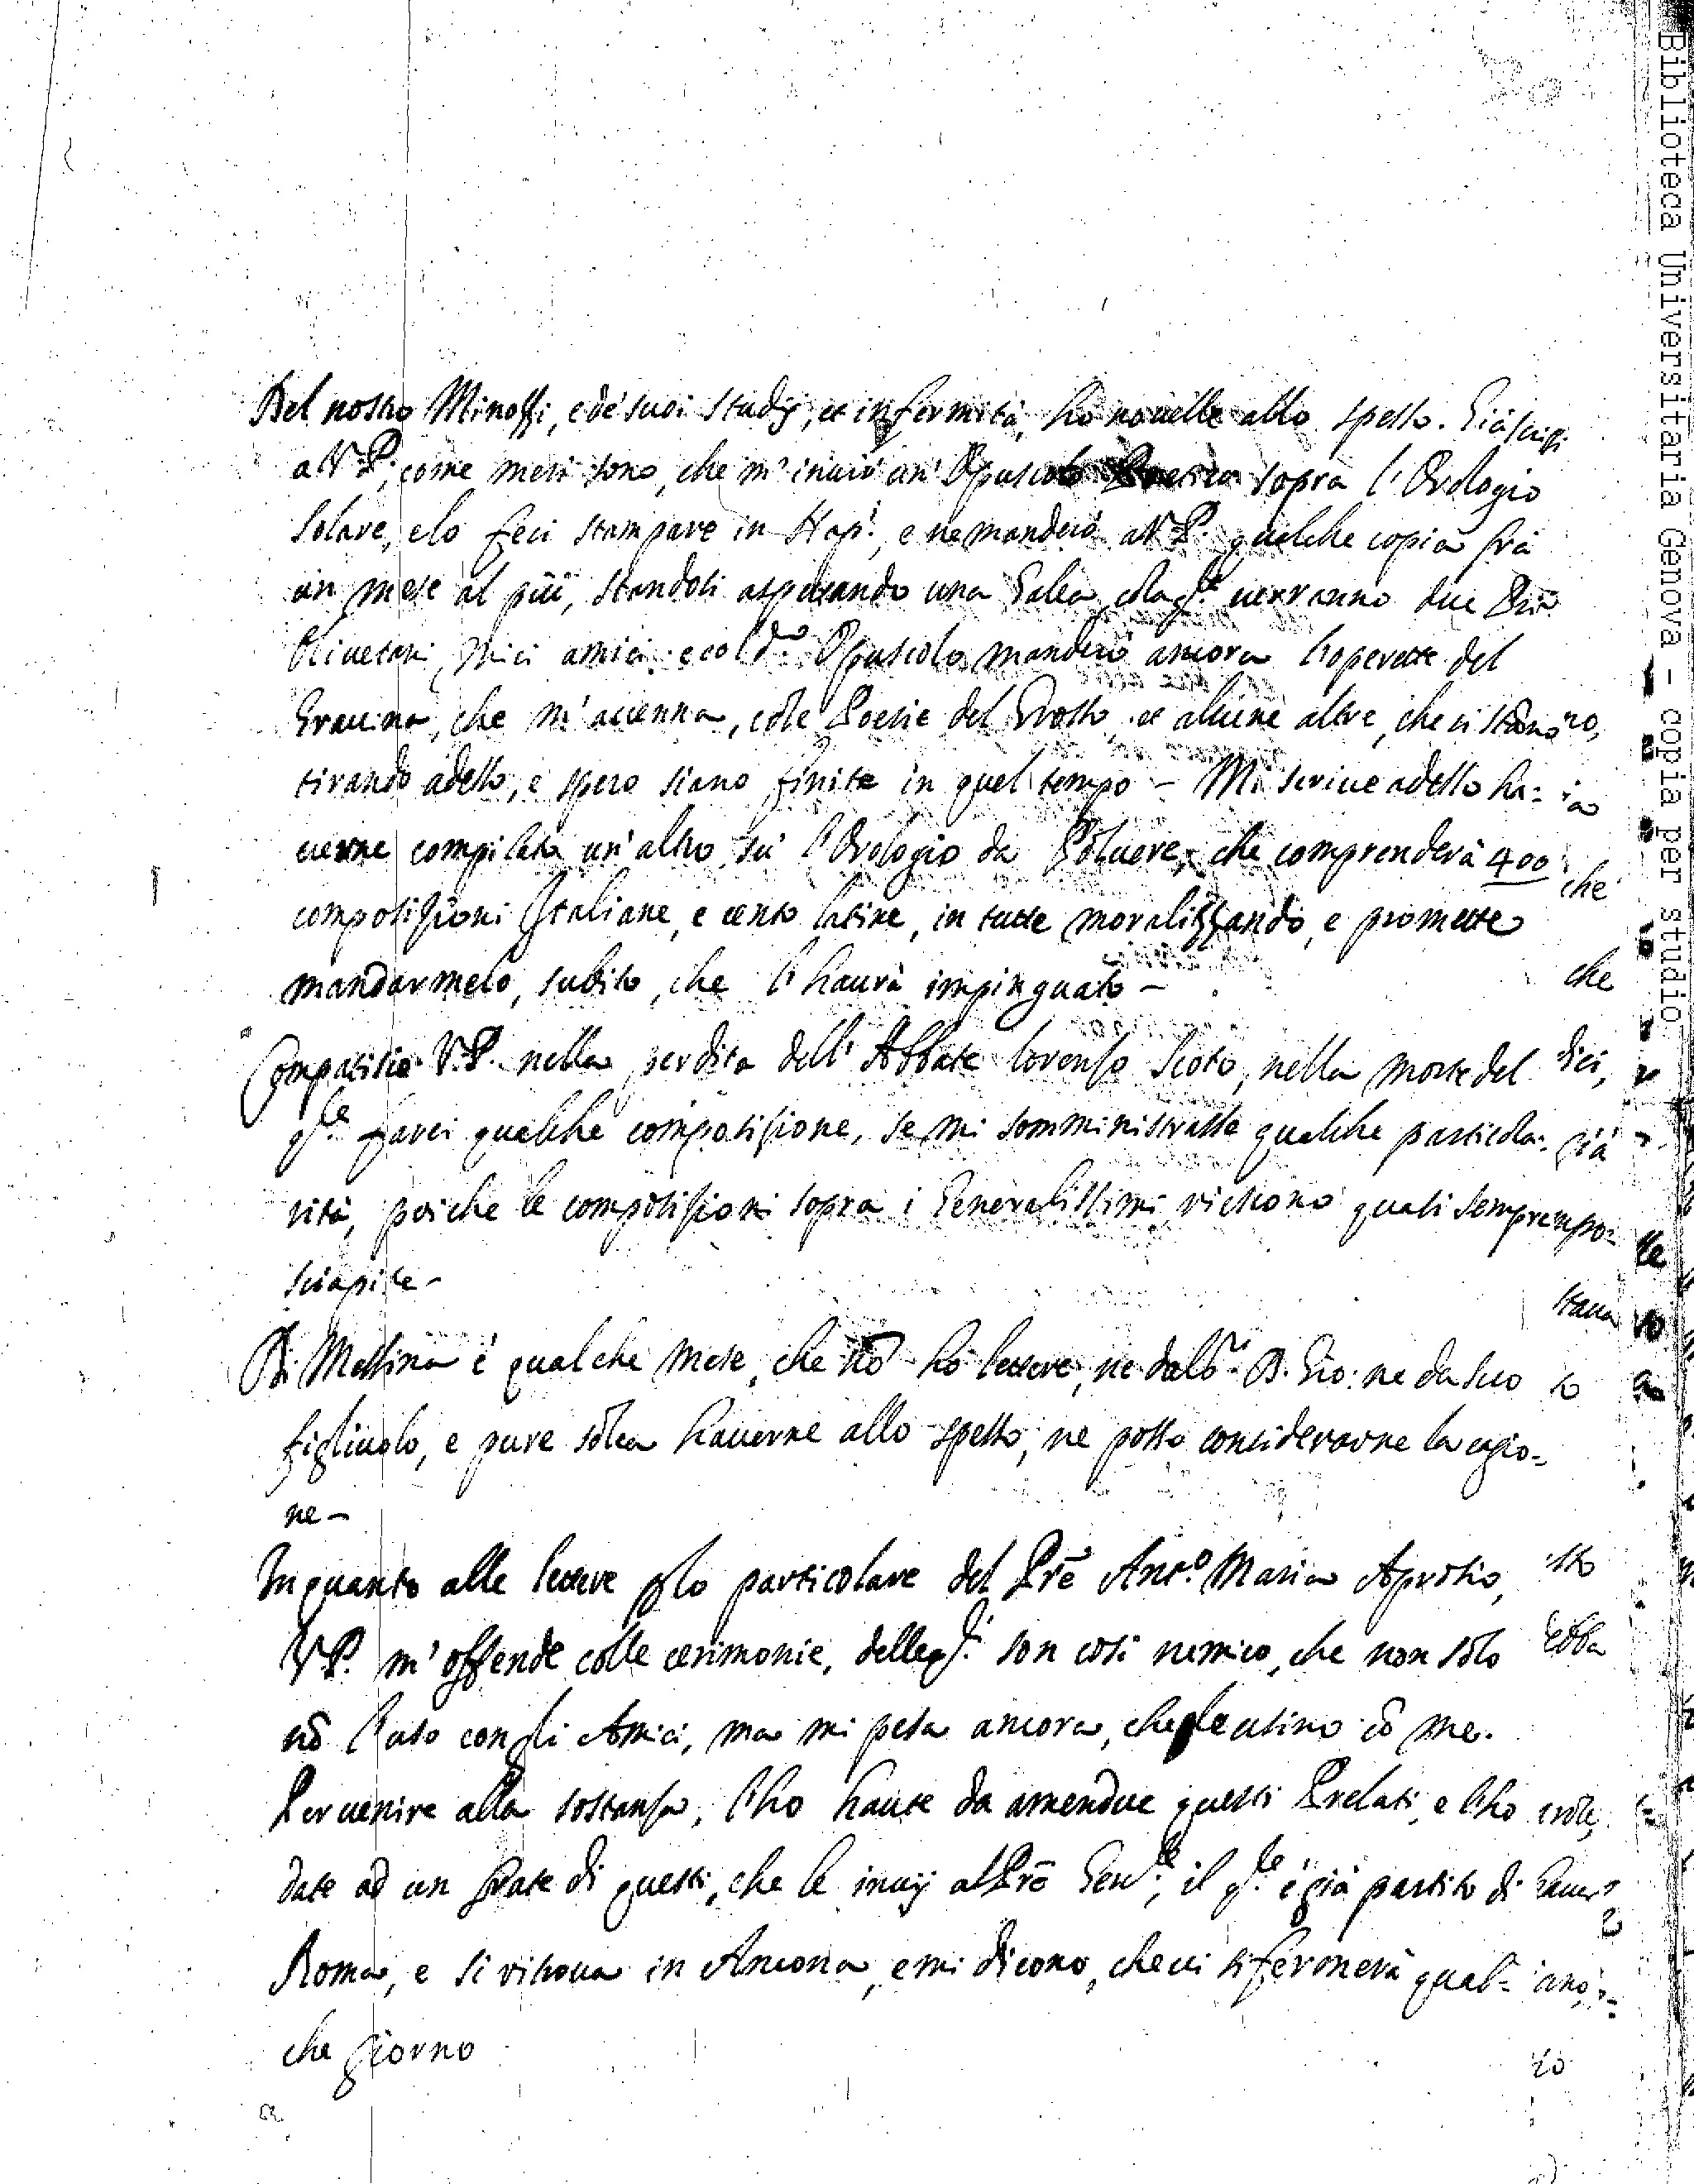 Del nostro Minossi, e de' suoi studij, et infermità, ho nouelle allo spesso. Già scrissi
a V. P. come mesi sono, che m'inuiò un' Opuscolo sopra l'Orologio
Solare, e lo feci stampare in Nap.ⁱ, e ne manderò a V. P. qualche copia frà
un mese al più, standosi aspettando una Galea, colla q.le uerranno due Prī
Oliuetani, miei amici: e col d.º Opuscolo manderò ancora l'operette del
Grauina, che m'accenna, e le Poesie del Grosso, et alcune altre, che si stāno
tirando adesso, e spero siano finite in quel tempo - Mi scriue adesso ha-
uerne compilato un' altro sù l'Orologio da Poluere, che comprenderà 400
composizioni Italiane, e cento latine, in tutte moralizzando, e promette
mandarmelo, subito, che l'haurà impinguato -
Compatisco V. P. nella perdita dell' Abbate Lorenzo Scoto, nella morte del
q.le farei qualche composizione, se mi somministrasse qualche particola-
rità, poiche le composizioni sopra i Generalissimi riescono quasi sempre
sciapite -
Di Messina è qualche mese, che nō ho lettere, ne dal S.r D. Gio: ne da suo
figliuolo, e pure solea hauerne allo spesso, ne posso considerarne la cagio-
ne -
Inquanto alle lettere p lo particolare del Prē Ant.º Maria Aprosio,
V. P. m'offende colle cerimonie, delle q.li son così nemico, che non solo
nō l'uso con gli Amici, ma mi pesa ancora, che le usino cō me.
Per uenire alla sostanza, l'ho haute da amendue questi Prelati, e l'ho
date ad un frate di questi, che le inuij al Prē Gen.le, il q.le è già partito di
Roma, e si ritroua in Ancona, e mi dicono, che ui si fermerà qual-
che giorno
che
che
dici,
già
staua
to
Biblioteca Universitaria Genova - copia per studio